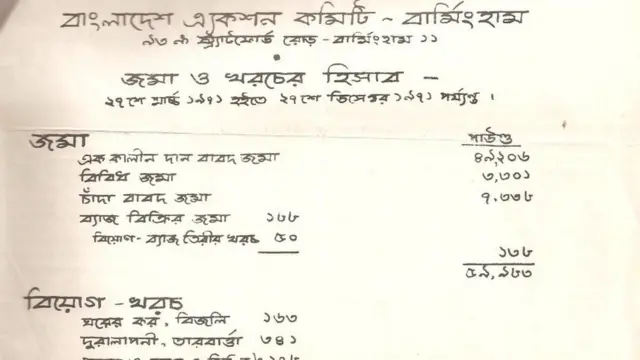 বাংলাদেশ এ্যকশন কমিটি - বার্মিংহাম
স্ট্র্যাটফোর্ড রোড - বার্মিংহাম ১১
জমা ও খরচের হিসাব -
২৭ শে মার্চ ১৯৭১ হইতে ২৭ শে ডিসেম্বর ১৯৭১ পর্য্যন্ত ।
জমা পাউণ্ড
এক কালীন দান বাবদ জমা ৪৯,২০৬
বিবিধ জমা ৩,৩০১
চাঁদা বাবদ জমা ৭,৩৩৮
ব্যাজ বিক্রির জমা ১৮৮
বিয়োগ - ব্যাজ তৈরীর খরচ ৫০
১৩৮
৫৯,৯৮৩
বিয়োগ - খরচ
ঘরের কর, বিজলি ১৬৩
দুরালাপনী, তারবার্ত্তা ৩৪১